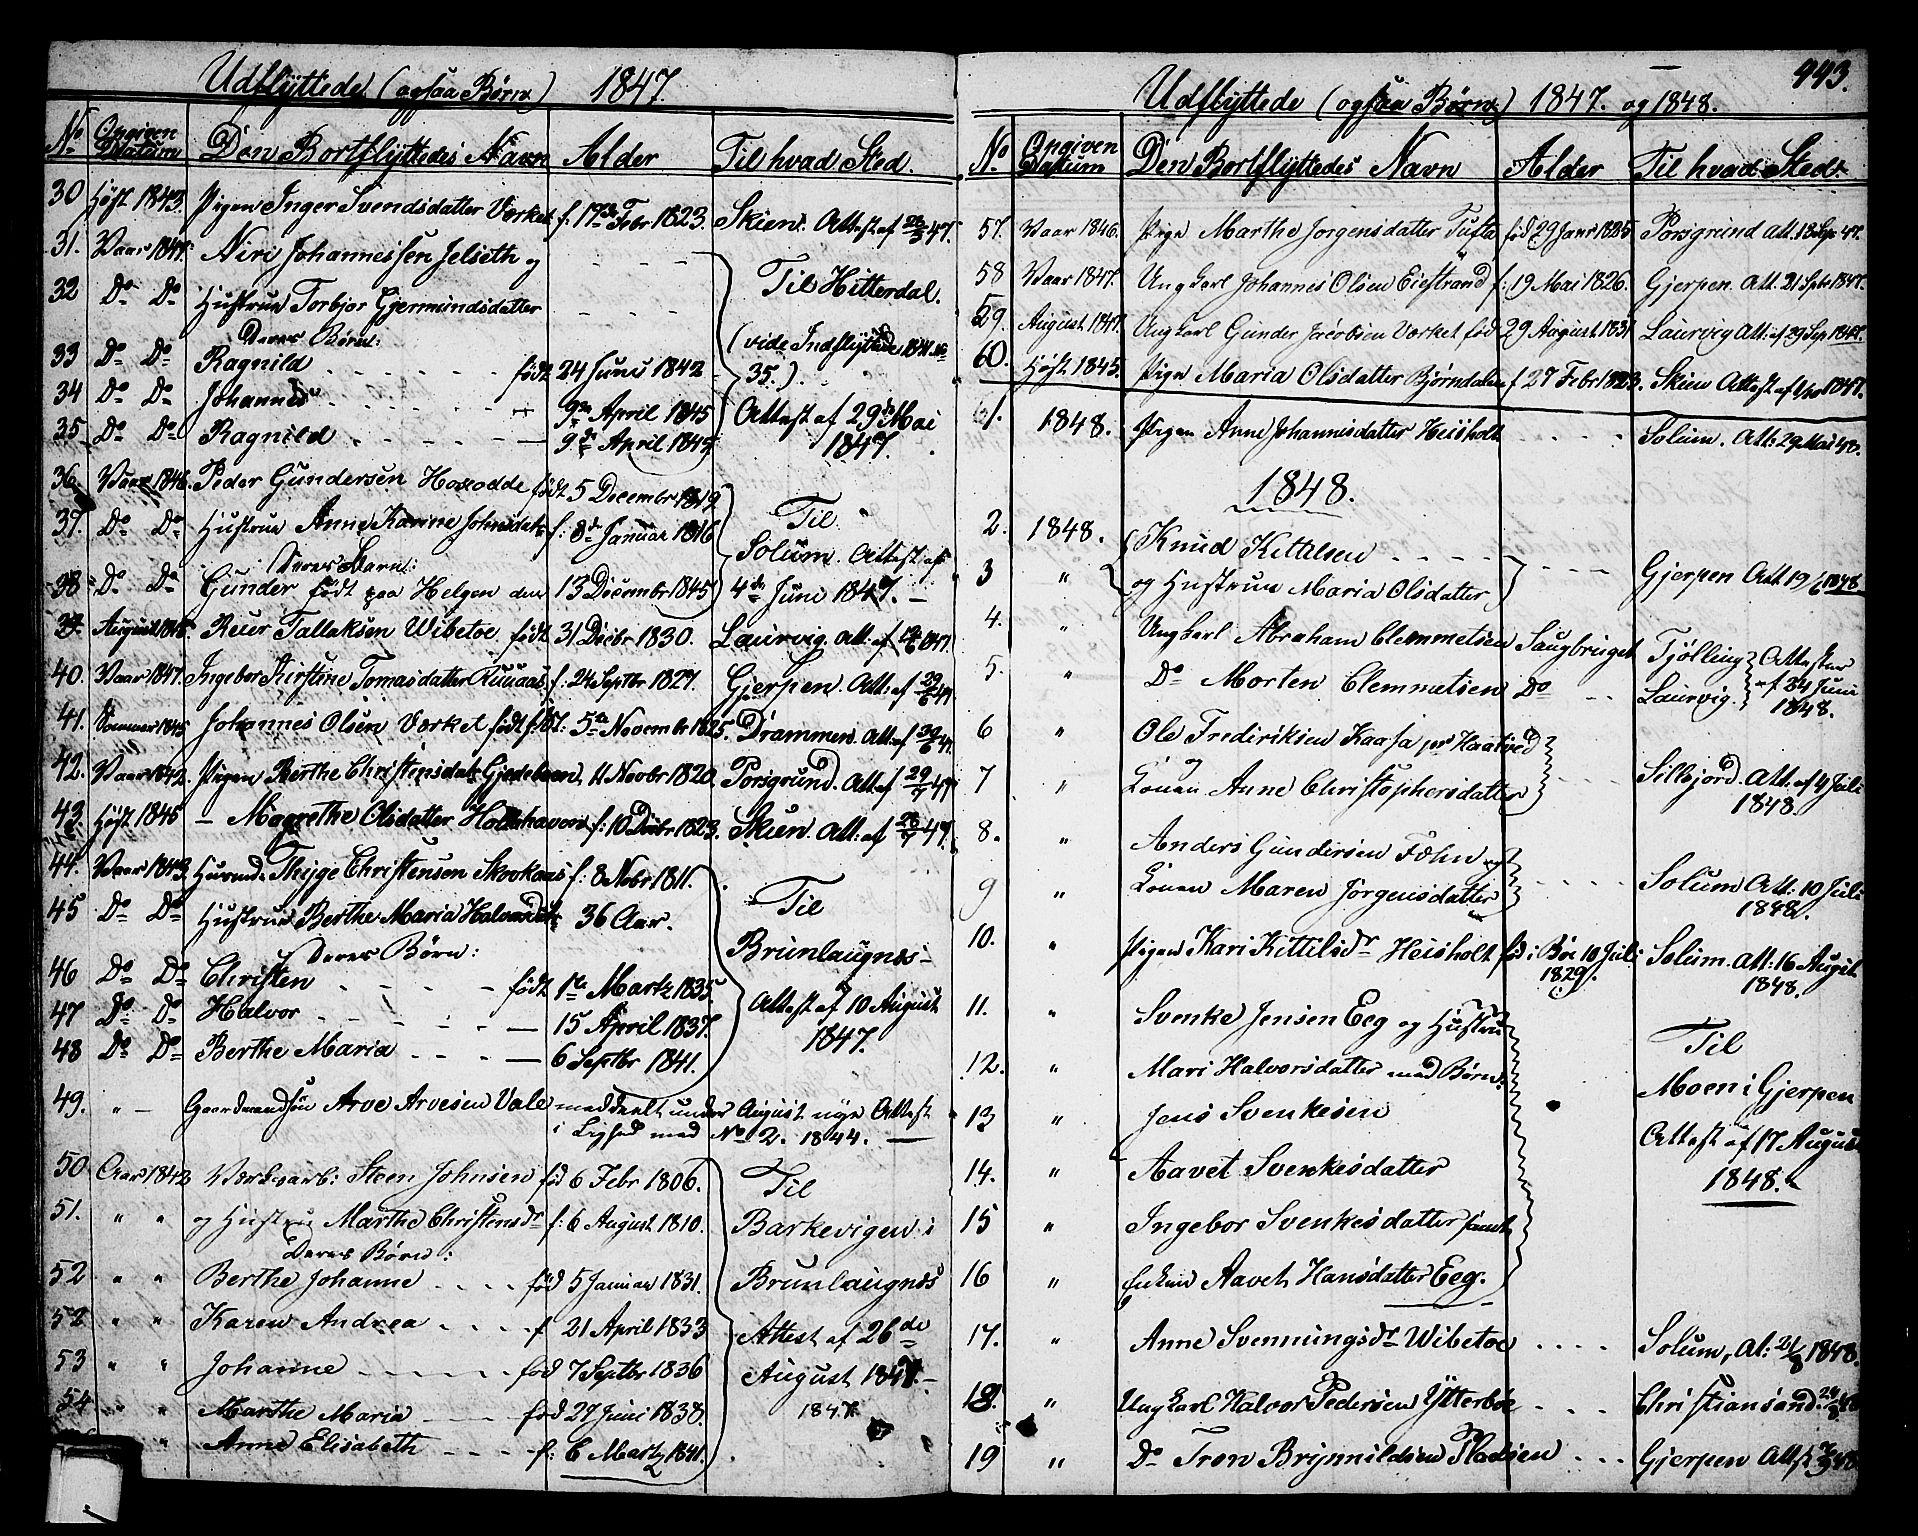 Udflyttede (ogsaa Børn) 1847.
No Opgiven Datum Den Bortflyttedes Navn Alder Til hvad Sted.
30 Høst 1843. Pigen Inger Svendsdatter Værket f. 17de Febr 1823. Skien. Attest af 28/5 47.
31. Vaar 1841. Niri Johannessen Jelseth og - - - -
32 Do Do Hustrue Torbjor Gjermundsdatter - - - - Til Hitterdal.
Deres Børn:
33 Do Do Ragnild - - - - født 24 Juni 1842 (vide Indflyttede 1841 No
34 Do Do Johannes - - - - 9de April 1845 35.).
35 Do Do Ragnild - - - - 9de April 1845 Attest af 29de Mai
1847.
36 Vaar 1846. Peder Gundersen født 5 Decembr 1819
37. Do Do Hustrue Anne Karine Johnsdatr f: 8de Januar 1816 Til
Deres Barn: Solum. Attest af
38 Do Do Gunder født paa Helgen den 13 Decembr 1845 4de Juni 1847.
39 August 1845 Reier Tallaksen Wibetoe født 31 Decbr 1830. Laurvig. Att. af
40. Vaar 1847. Ingebor Kirstine Tomasdatter f: 24 Septbr 1827. Gjerpen. Att: af 29/6 47
41. Sommer 1845 Johannes Olsen Værket født 5te Novembr 1825. Drammen. Att: af 30/6 47.
42. Vaar 1842. Pigen Berthe Christensdatr 11 Novbr 1820. Porsgrund. Att: af 29/7 47
43. Høst 1845 - Magrethe Olsdatter f: 10 Decbr 1823. Skien. Att: af 28/7 47.
44. Vaar 1843. Thijge Christensen Skookaas f: 8 Nobr 1811.
45 Do Do Hustrue Berthe Maria Halvorsdtr 36 Aar. Til
Deres Børn: Brunlaugnæs-
46 Do Do Christen - - - - født 1te Martz 1835
47 Do Do Halvor - - - - 15 April 1837. Attest af 10 August
48 Do Do Berthe Maria - - - - 6 Septbr 1841. 1847.
49. " - Gaardmandsøn Arve Arvesen Vale meddeelt under August nye Attest
i Lighed med No 2. 1844.
50 Aar 1842 Værksarb: Steen Johnsen fød 6 Febr 1806. Til
51. " " og Hustrue Marthe Christensdr f: 6 August 1810. Barkevigen i
Deres Børn:
52 " " Berthe Johanne - - - - fød 5 Januar 1831. Brunlaugnæs
52 " " Karen Andrea - - - - f 21 April 1833 Attest af 26de
53 " " Johanne - - - - fød 7 Septbr 1836 August 1847
54 " " Marthe Maria - - - - fød 27 Juni 1838. 1847.
" Anne Elisabeth - - - - f: 6 Martz 1841.
443.
Udflyttede (ogsaa Børn) 1847. og 1848.
No Opgiven Datum Den Bortflyttedes Navn Alder Til hvad Sted.
57. Vaar 1846. Pige Marthe Jorgensdatter Tufta fød 29 Janr 1825 Porsgrund Att. 18 Sepr 47.
58 Vaar 1847. Ungkarl Johannes Olsen Eiestrand f: 19 Mai 1826. Gjerpen. Att. 21 Sptr 1847.
59. August 1847. Ungkarl Gunder Jacobsen Værket fød 29 August 1831 Laurvig Att: af 29 Sep 1847.
60. Høst 1845. Pige Maria Olsdatter Bjørndalen f 27 Febr 1823. Skien Attest af 1847.
61. 1848. Pigen Anne Johannesdatter Heisholt - - - - Solum. Att: 29 Mai 48.
1848.
2. 1848. Knud Kittelsen - - - -
3 " og Hustrue Maria Olsdatter - - - Gjerpen Att 19/6 1848
4. " Ungkarl Abraham Clemmetsen Saugbruget Tjølling Attester
5. " Do Morten Clemmetsen Do - - Laurvig. af 24 Juni
1848.
6 " Ole Fredriksen Kaasa pr Haatved
og
7 " Konen Anne Christophersdatter - - - Silljord. Att. af 4 Juli
1848.
8. " Anders Gundersen Fæhn og
9 " Konen Maren Jörgensdatter - - - - Solum Att. 10 Juli
1848.
10. " Pigen Kari Kittilsdr Heisholt fød i Böe 10 Juli Solum. Att: 16 August
1829. 1848.
11. " Svenke Jensen Eeg og Hustru
12. " Mari Halvorsdatter med Børn: Til
13 " Jens Svenkesen Moen i Gjerpen
14. " Aavet Svenkesdatter Attest af 17 August
1848.
15 " Ingebor Svenkesdatter samt
16 " Enken Aavet Hansdatter Eeg.
17. " Anne Svenningsdr Wibetoe - - - - Solum, At: 21/8 1848.
18. " Ungkarl Halvor Pedersen Ytterbøe - - - - Christiansand. 24/8 48
19 " Do Tron Brijnnildsen Pladsen - - - Gjerpen Attst